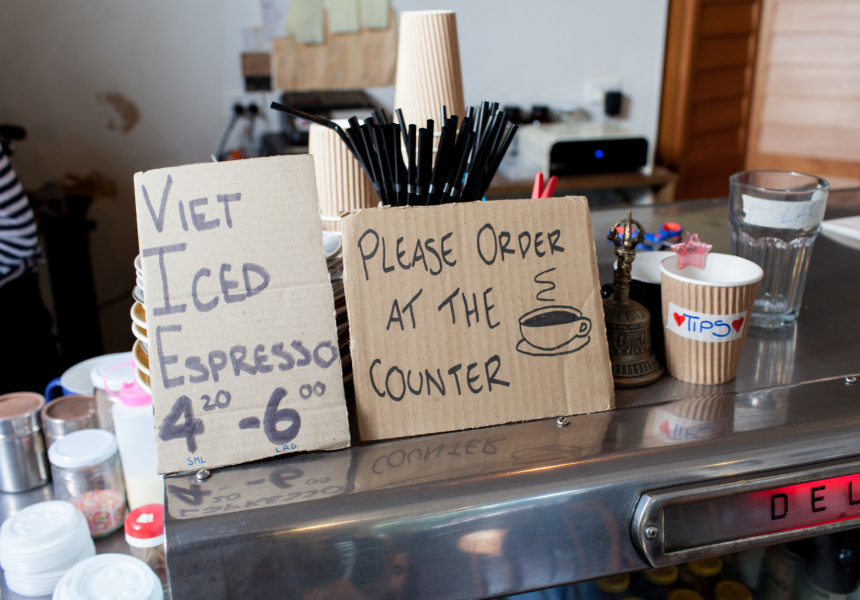 VIET
ICED
ESPRESSO
4²⁰ - 6⁰⁰
SML LRG
PLEASE ORDER
AT THE
COUNTER
TIPS
DEL